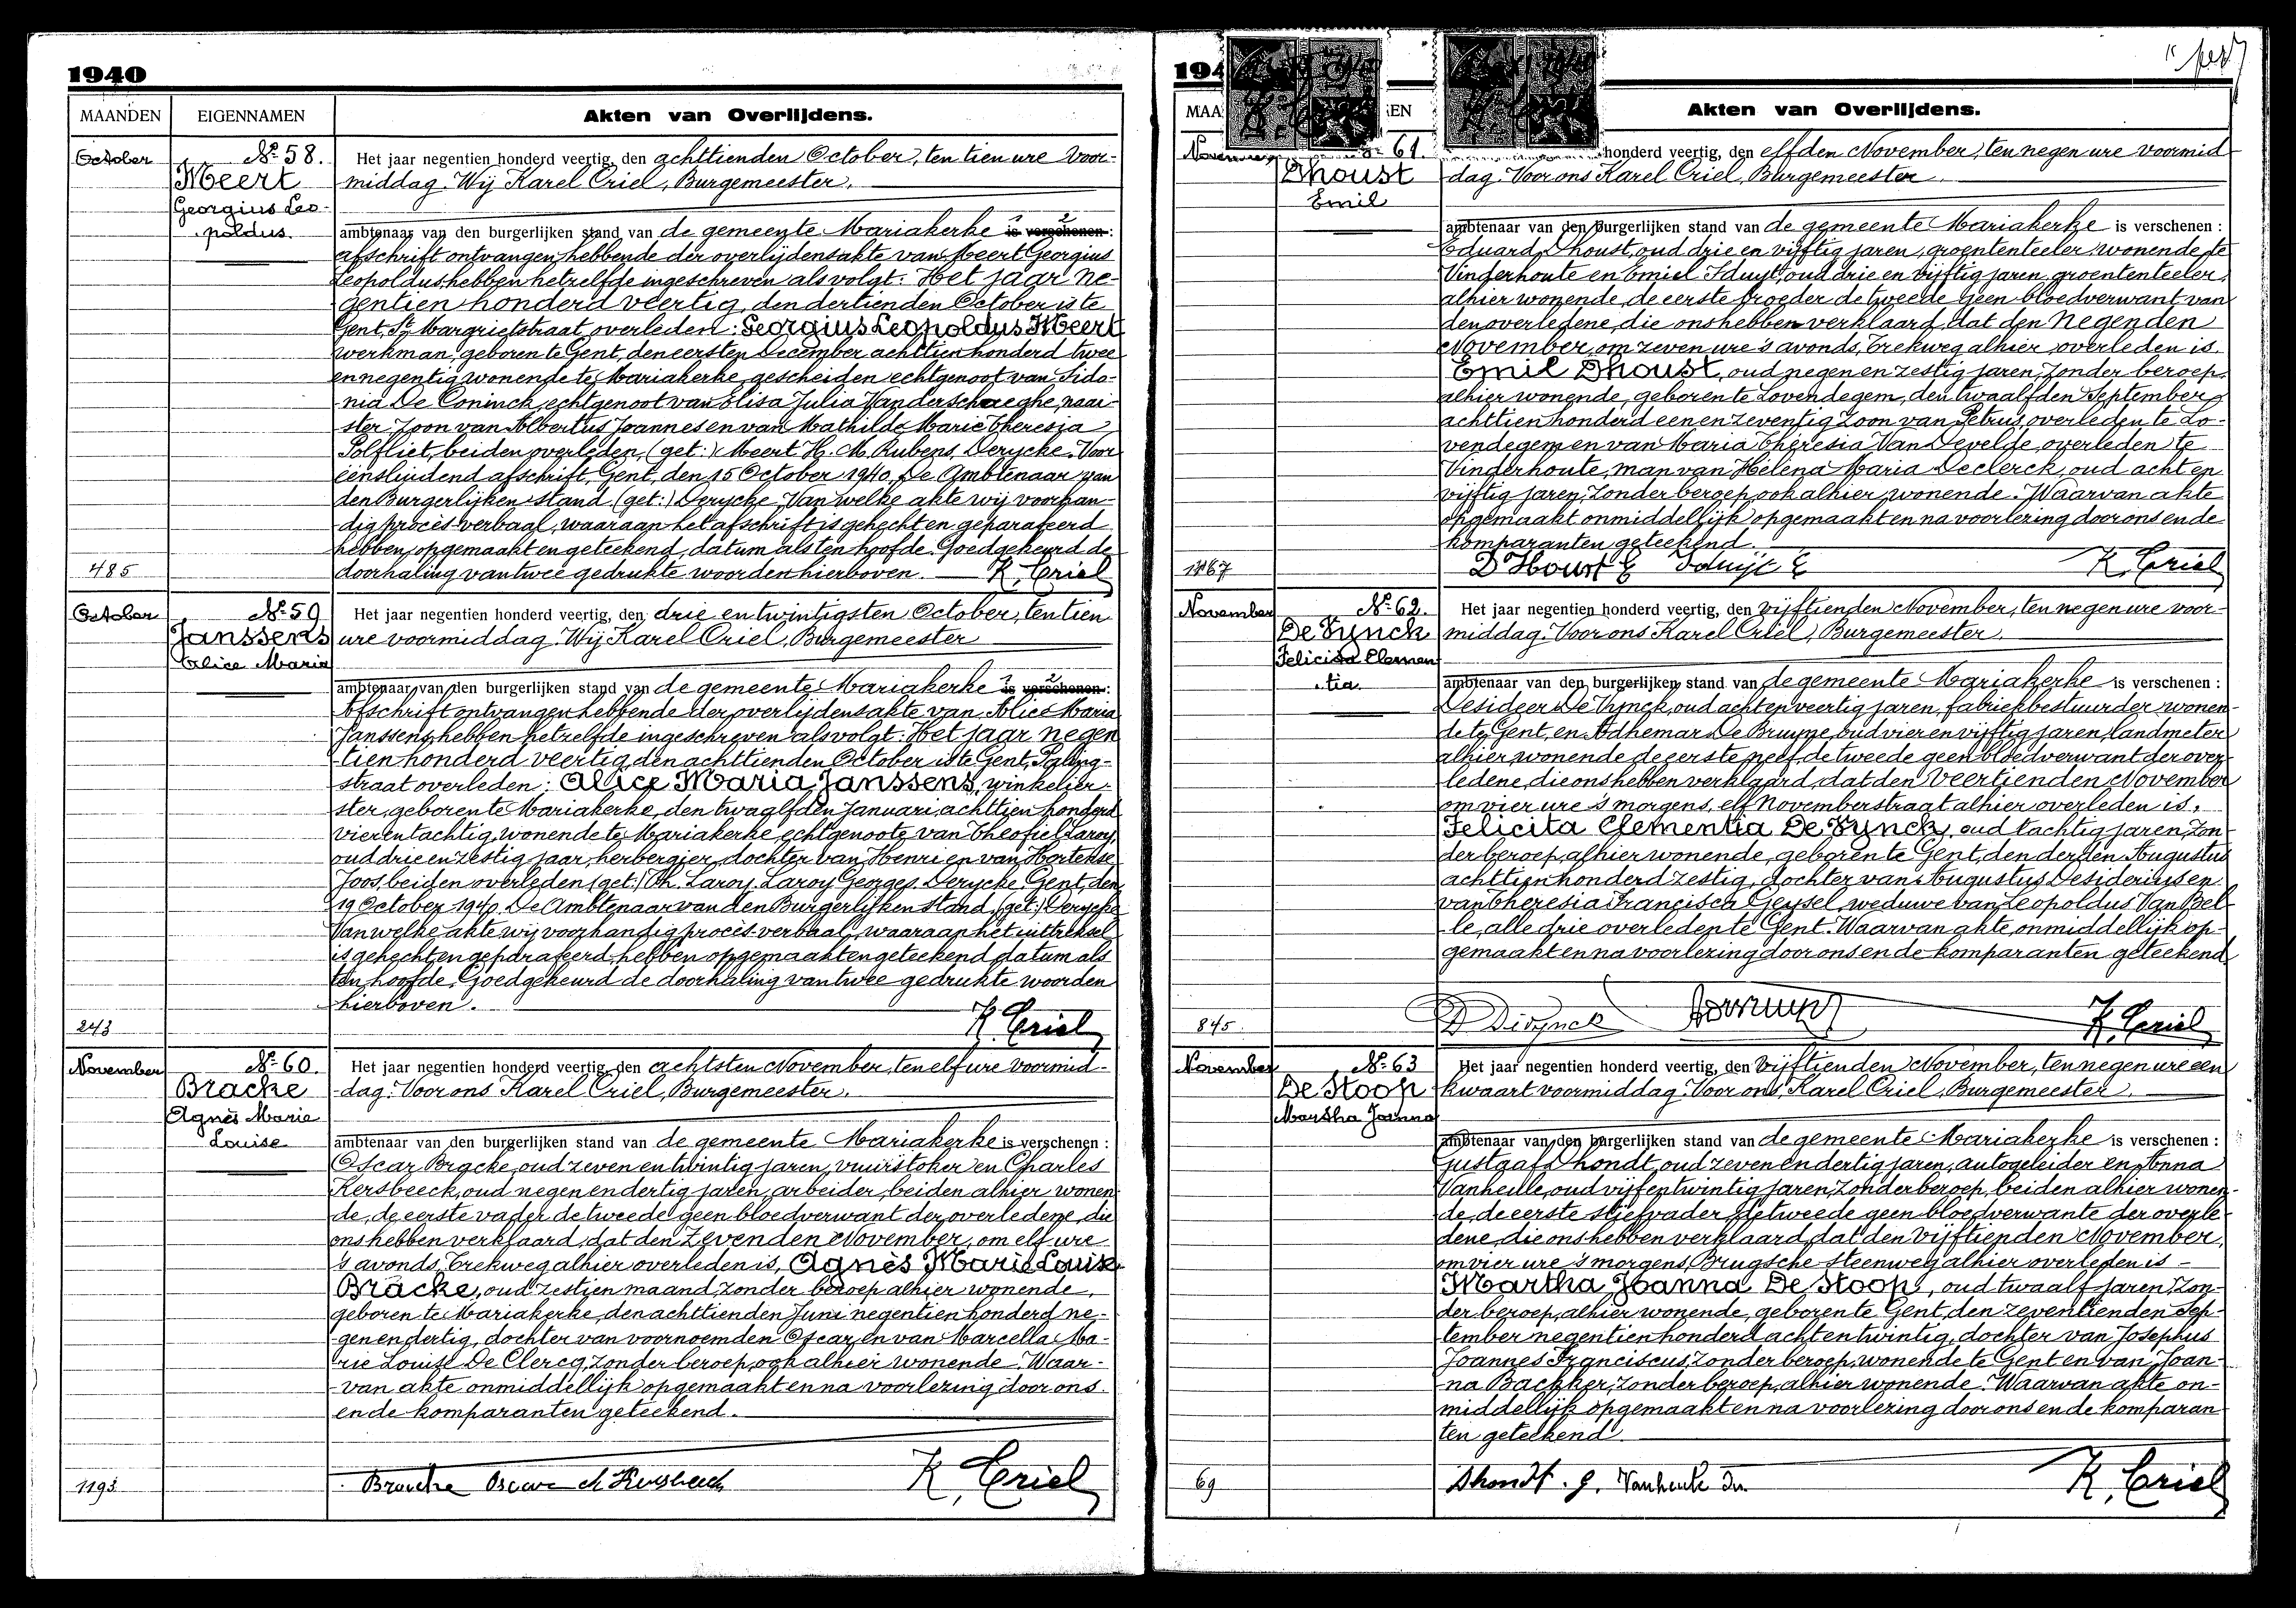 1940
MAANDEN
EIGENNAMEN
Akten van Overlijdens.
October
No 58.
Meert
Georgius Leo-
poldus.
485
Het jaar negentien honderd veertig, den achttienden October, ten tien ure voor-
middag. Wij Karel Criel, Burgemeester.
ambtenaar van den burgerlijken stand van de gemeente Mariakerke is verschenen :
afschrift ontvangen hebbende der overlijdensakte van Meert Georgius
Leopoldus, hebben hetzelfde ingeschreven als volgt: Het jaar ne-
gentien honderd veertig, den dertienden October is te
Gent, St Margrietstraat, overleden: Georgius Leopoldus Meert
werkman, geboren te Gent, den eersten December achttien honderd twee
en negentig, wonende te Mariakerke, gescheiden echtgenoot van Sido-
nia De Coninck, echtgenoot van Elisa Julia Vanderschaeghe, naai-
ster, zoon van Albertus Joannes en van Mathilde Marie Theresia
Polfliet, beiden overleden, (get:) Meert H. M. Rubens, Derycke. Voor
eensluidend afschrift, Gent, den 15 October 1940. De Ambtenaar van
den Burgerlijken stand (get:) Derycke. Van welke akte wij voorhan-
dig procès-verbaal, waaraan het afschrift is gehecht en geparafeerd
hebben, opgemaakt en geteekend, datum als ten hoofde. Goedgekeurd de
doorhaling van twee gedrukte woorden hierboven. K. Criel
October
No 59
Janssens
Alice Maria
243
Het jaar negentien honderd veertig, den drie en twintigsten October, ten tien
ure voormiddag. Wij Karel Criel, Burgemeester
ambtenaar van den burgerlijken stand van de gemeente Mariakerke is verschenen :
Afschrift ontvangen hebbende der overlijdensakte van Alice Maria
Janssens, hebben hetzelfde ingeschreven als volgt: Het jaar negen
tien honderd veertig, den achttienden October is te Gent, Paling-
straat overleden: Alice Maria Janssens, winkelier-
ster, geboren te Mariakerke, den twaalfden Januari achttien honderd
vier en tachtig, wonende te Mariakerke, echtgenoote van Theofiel Laroy,
oud drie en zestig jaar, herbergier, dochter van Henri en van Hortense
Joos, beiden overleden (get:) Th. Laroy. Laroy Georges. Derycke. Gent, den
19 October 1940. De Ambtenaar van den Burgerlijken Stand. (get:) Derycke
Van welke akte wij voorhandig procès-verbaal, waaraan het uittreksel
is gehecht en geparafeerd, hebben opgemaakt en geteekend, datum als
ten hoofde. Goedgekeurd de doorhaling van twee gedrukte woorden
hierboven.
K. Criel
November
No 60.
Bracke
Agnès Marie
Louise
1193
Het jaar negentien honderd veertig, den achtsten November, ten elf ure voormid-
dag. Voor ons Karel Criel, Burgemeester.
ambtenaar van den burgerlijken stand van de gemeente Mariakerke is verschenen :
Oscar Bracke, oud zeven en twintig jaren, vuurstoker en Charles
Kersbeeck, oud negen en dertig jaren, arbeider, beiden alhier wonen-
de, de eerste vader de tweede geen bloedverwant der overledene, die
ons hebben verklaard, dat den Zevenden November, om elf ure
's avonds, Trekweg alhier overleden is, Agnès Marie Louise
Bracke, oud zestien maand, zonder beroep alhier wonende,
geboren te Mariakerke, den achttienden Juni negentien honderd ne-
gen en dertig, dochter van voornoemden Oscar, en van Marcella Ma-
rie Louise De Clercq, zonder beroep, ook alhier wonende. Waar-
van akte onmiddellijk opgemaakt en na voorlezing door ons
en de komparanten geteekend.
Bracke Oscar ch Kersbeeck K. Criel
Akten van Overlijdens.
November
61.
Dhoust
Emil
1167
honderd veertig, den elfden November, ten negen ure voormid
dag. Voor ons Karel Criel, Burgemeester
ambtenaar van den burgerlijken stand van de gemeente Mariakerke is verschenen :
Eduard Dhoust, oud drie en vijftig jaren, groententeeler, wonende te
Vinderhoute en Emiel Sduyt, oud drie en vijftig jaren, groententeeler,
alhier wonende, de eerste broeder de tweede geen bloedverwant van
den overledene, die ons hebben verklaard, dat den Negenden
November, om zeven ure 's avonds, Trekweg alhier overleden is.
Emil Dhoust, oud negen en zestig jaren, zonder beroep,
alhier wonende, geboren te Lovendegem, den twaalfden September
achttien honderd een en zeventig, zoon van Petrus, overleden te Lo-
vendegem en van Maria Theresia Van Develde, overleden te
Vinderhoute, man van Helena Maria Declerck, oud acht en
vijftig jaren, zonder beroep, ook alhier wonende. Waarvan akte
opgemaakt onmiddellijk opgemaakt en na voorlezing door ons en de
komparanten geteekend.
D'Houst E Sduijt E K. Criel
November
No 62.
De Vynck
Felicita Clemen
tia.
845
Het jaar negentien honderd veertig, den vijftienden November, ten negen ure voor-
middag. Voor ons Karel Criel, Burgemeester.
ambtenaar van den burgerlijken stand van de gemeente Mariakerke is verschenen :
Desideer De Vynck, oud acht en veertig jaren, fabriekbestuurder wonen-
de te Gent, en Adhemar De Bruyne, oud vier en vijftig jaren, landmeter
alhier wonende de eerste neef de tweede geen bloedverwant der over-
ledene, die ons hebben verklaard, dat den Veertienden November
om vier ure 's morgens, elf Novemberstraat alhier overleden is,
Felicita Clementia De Vynck, oud tachtig jaren, zon-
der beroep, alhier wonende, geboren te Gent, den derden Augustus
achttien honderd zestig, dochter van Augustus Desiderius en
van Theresia Francisca Geysel, weduwe van Leopoldus Van Bel-
le, alle drie overleden te Gent. Waarvan akte, onmiddellijk op-
gemaakt en na voorlezing door ons en de komparanten geteekend
K. Criel
November
No 63
De Stoop
Martha Joanna
69
Het jaar negentien honderd veertig, den Vijftienden November, ten negen ure een
kwaart voormiddag. Voor ons, Karel Criel, Burgemeester.
ambtenaar van den burgerlijken stand van de gemeente Mariakerke is verschenen :
Gustaaf Dhondt, oud zeven en dertig jaren, autogeleider en Anna
Vanheule, oud vijf en twintig jaren, zonder beroep, beiden alhier wonen-
de, de eerste stiefvader, de tweede geen bloedverwante der overle-
dene, die ons hebben verklaard, dat den vijftienden November,
om vier ure 's morgens, Brugsche steenweg alhier overleden is -
Martha Joanna De Stoop, oud twaalf jaren, zon-
der beroep, alhier wonende, geboren te Gent, den zeventienden Sep-
tember negentien honderd acht en twintig, dochter van Josephus
Joannes Franciscus, zonder beroep, wonende te Gent en van Joan-
na Backker, zonder beroep, alhier wonende. Waarvan akte on-
middellijk opgemaakt en na voorlezing door ons en de komparan
ten geteekend.
Dhondt. g. Vanheule K. Criel